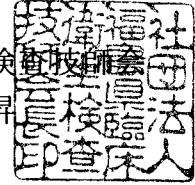 検査技師会
昇
社団法人
福岡県臨床
衛生検査
技師会長印